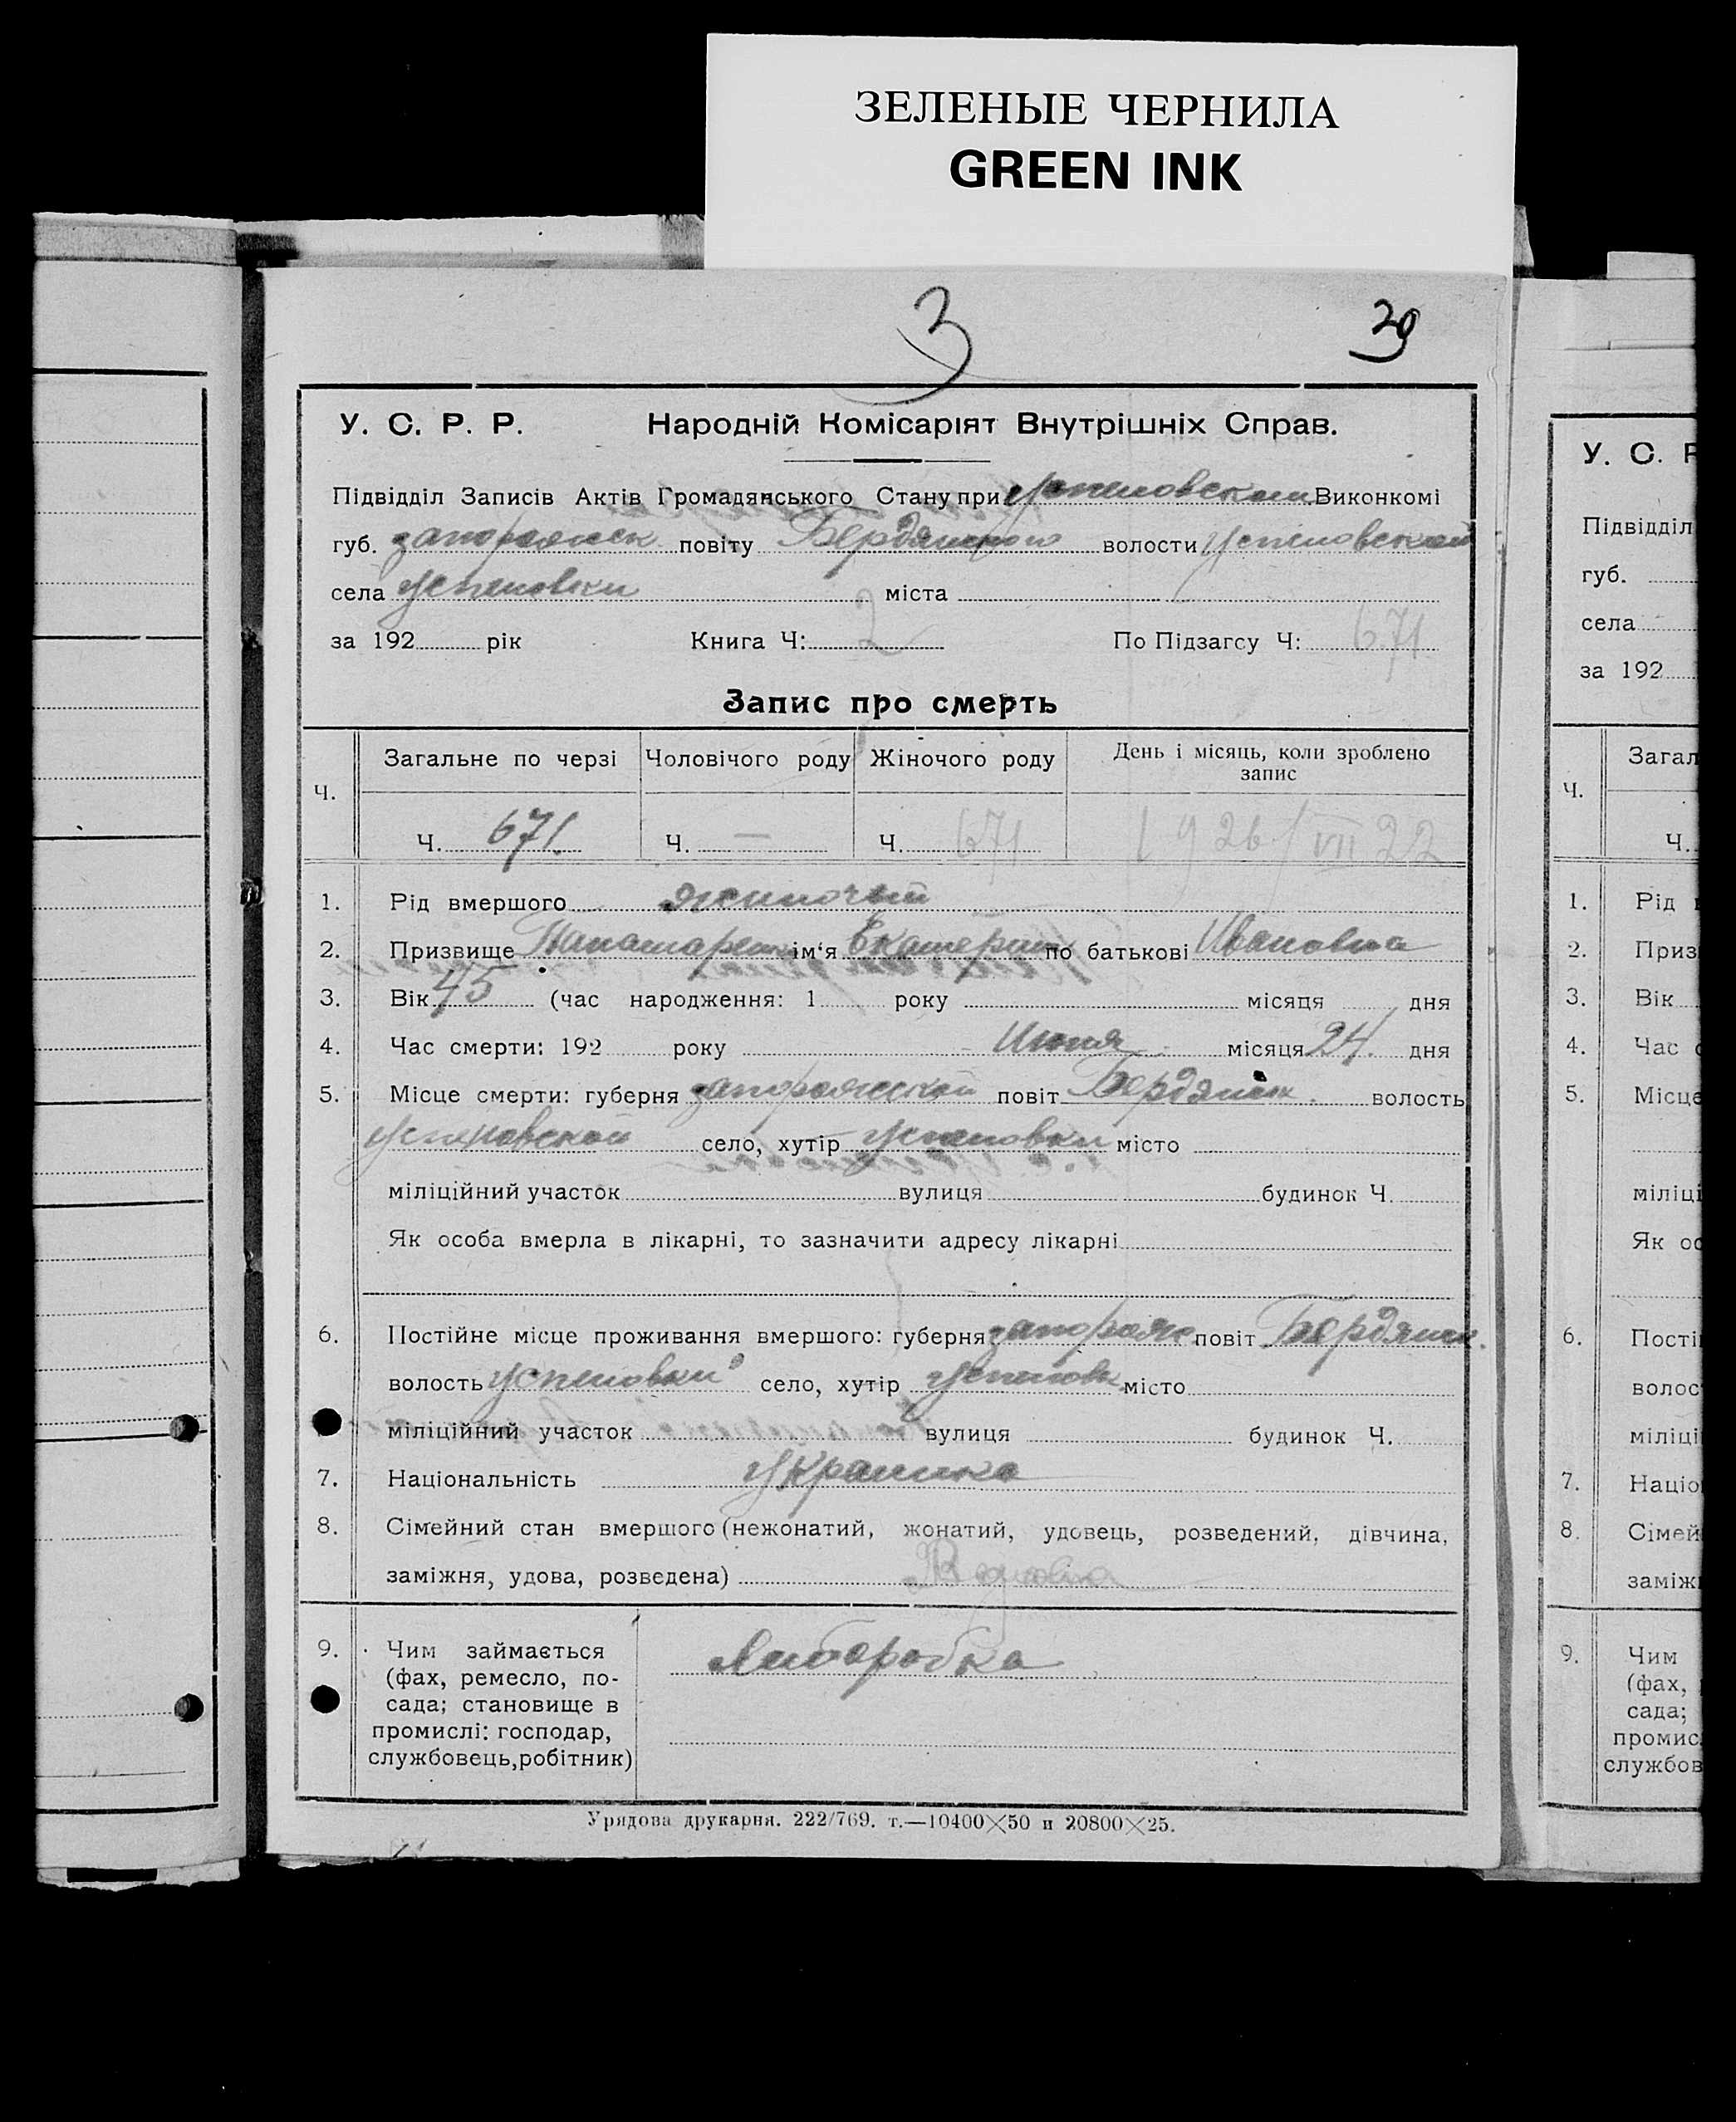 ЗЕЛЕНЫЕ ЧЕРНИЛА
GREEN INK
3
39
У. С. Р. Р. Народній Комісаріят Внутрішніх Справ.
Підвідділ Записів Актів Громадянського Стану при Успеновском Виконкомі
губ. запорожск повіту Бердянского волости Успеновской
села Успеновки міста
за 192 рік Книга Ч: 2 По Підзагсу Ч: 671
Запис про смерть
Ч. Загальне по черзі Чоловічого роду Жіночого роду День і місяць, коли зроблено запис
Ч. 671. Ч. — Ч. 671 192 / VII 22
1. Рід вмершого жиночый
2. Призвище ім‘я Екатерин по батькові Ивановна
3. Вік 45 (час народження: 1 року місяця дня
4. Час смерти: 192 року Июня місяця 24. дня
5. Місце смерти: губерня запорожской повіт Бердянск. волость
Успеновской село, хутір Успеновки місто
міліційний участок вулиця будинок Ч.
Як особа вмерла в лікарні, то зазначити адресу лікарні
6. Постійне місце проживання вмершого: губерня запорож повіт Бердянск.
волость Успеновки село, хутір Успеновк місто
міліційний участок вулиця будинок Ч.
7. Національність Украинка
8. Сімейний стан вмершого (нежонатий, жонатий, удовець, розведений, дівчина,
заміжня, удова, розведена) Вдовва
9. Чим займається Хлиборобка
(фах, ремесло, по-
сада; становище в
промислі: господар,
службовець, робітник)
Урядова друкарня. 222/769. т.—10400×50 и 20800×25.
У. С. Р
Підвідділ
губ.
села
за 192
Ч. Загал
Ч.
1. Рід
2. Приз
3. Вік
4. Час
5. Місце
міліці
Як ос
6. Пості
волос
міліці
7. Націо
8. Сімей
заміж
9. Чим
(фах,
сада;
промис
службов